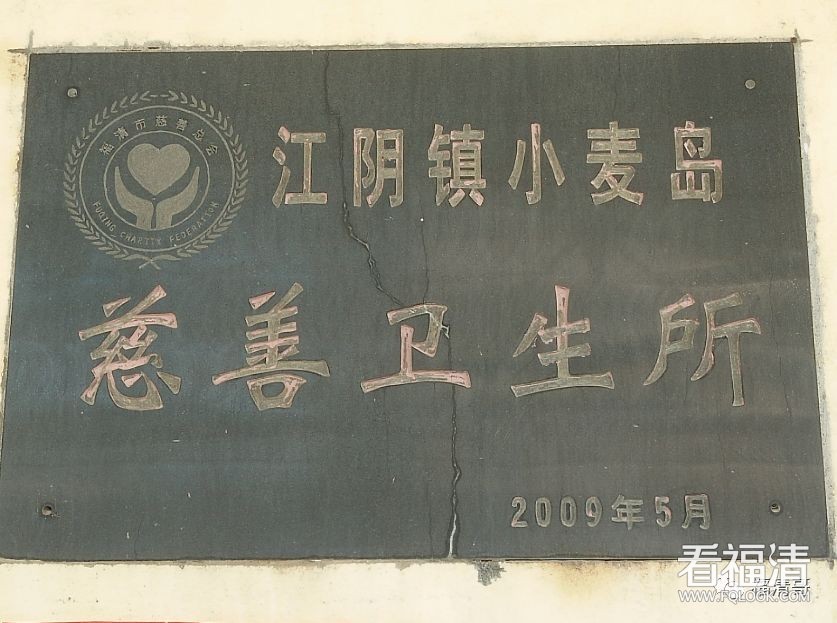 福清市慈善总会
FUQING CHARITY FEDERATION
江阴镇小麦岛
慈善卫生所
2009年5月
看福清
WWW.FQLOOK.COM